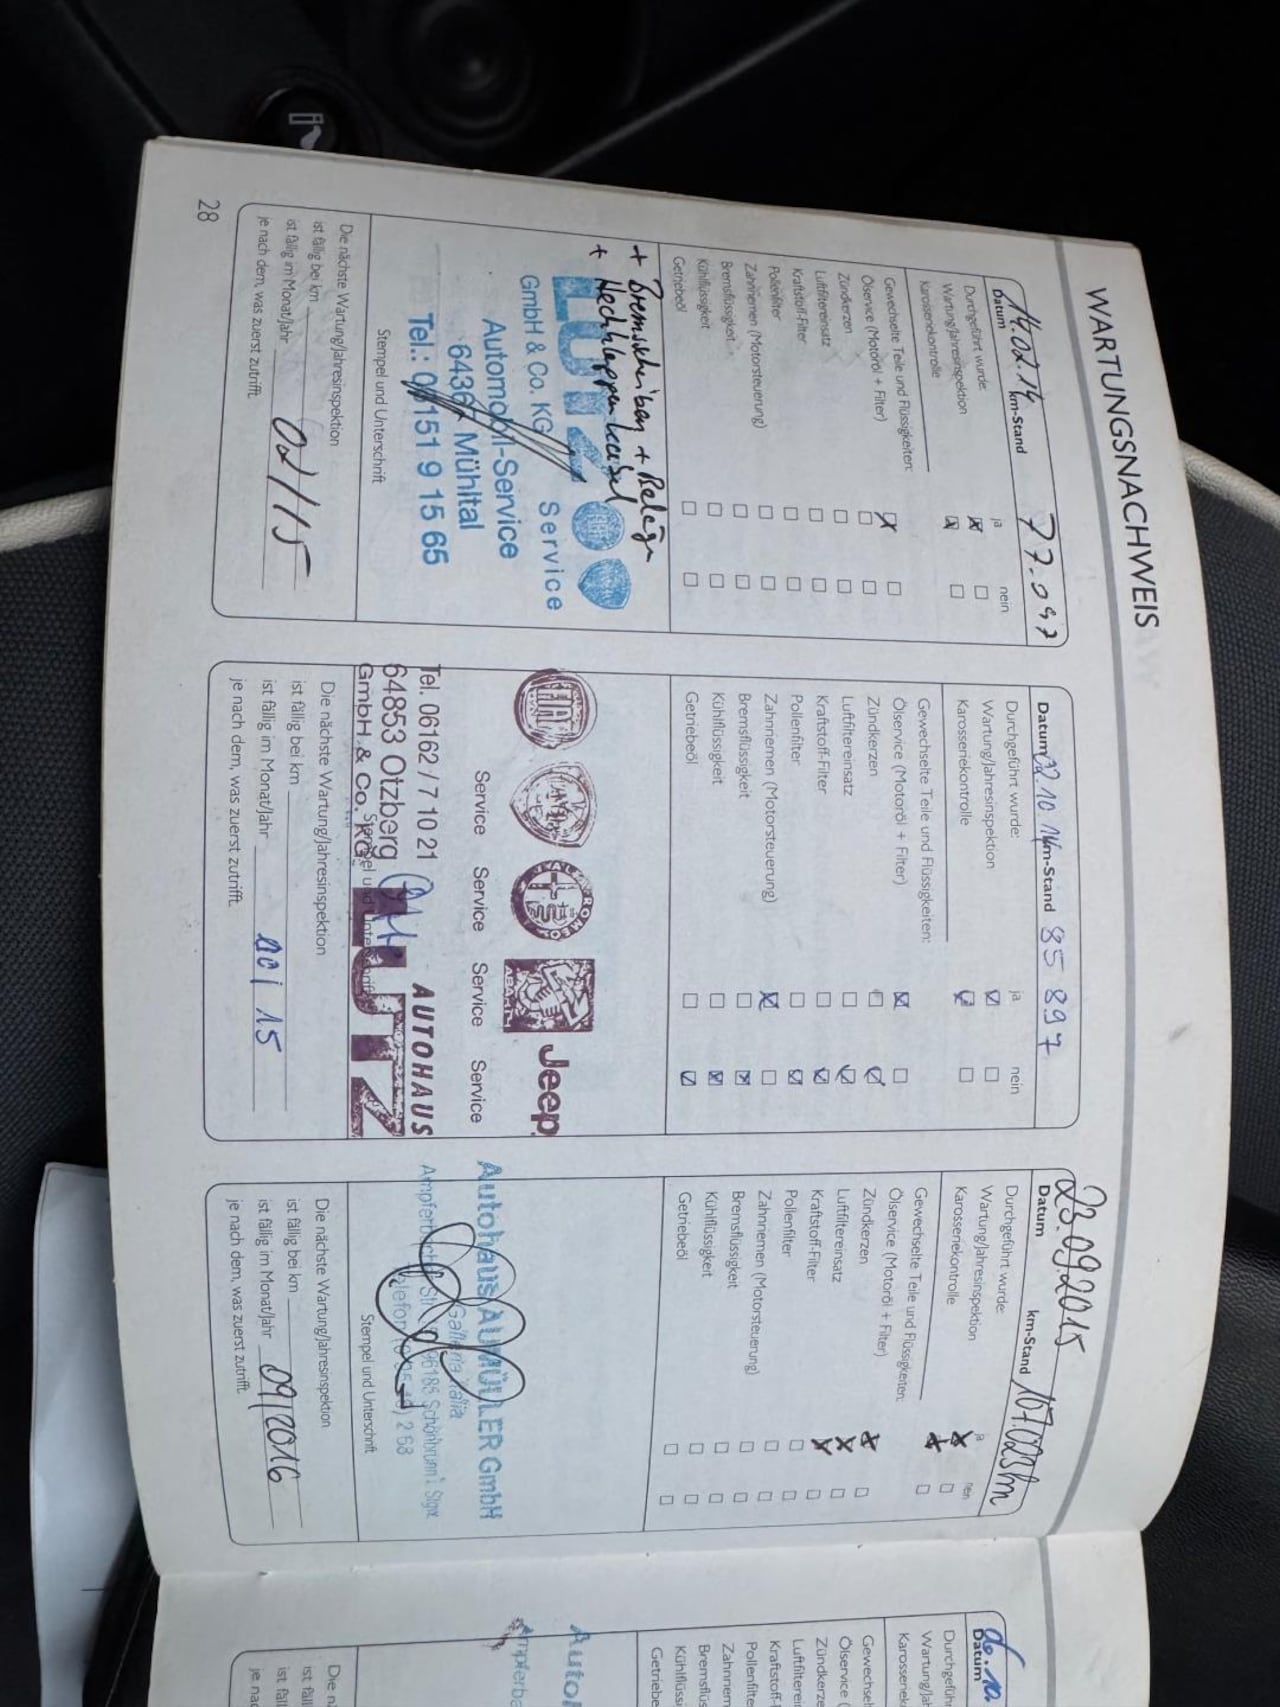 WARTUNGSNACHWEIS
14.02.14 77.097
Datum km-Stand
Durchgeführt wurde: ja nein
Wartung/Jahresinspektion
Karosseriekontrolle
Gewechselte Teile und Flüssigkeiten:
Ölservice (Motoröl + Filter)
Zündkerzen
Luftfiltereinsatz
Kraftstoff-Filter
Pollenfilter
Zahnriemen (Motorsteuerung)
Bremsflüssigkeit
Kühlflüssigkeit
Getriebeöl
+ Bremsscheiben + Beläge
+ Heckklappenkabel
LUTZ
Service
GmbH & Co. KG
Automobil-Service
64367 Mühltal
Tel.: 06151 9 15 65
Stempel und Unterschrift
Die nächste Wartung/Jahresinspektion
ist fällig bei km
ist fällig im Monat/Jahr 02/15
je nach dem, was zuerst zutrifft.
28
Datum 02.10.14 km-Stand 85 897
Durchgeführt wurde: ja nein
Wartung/Jahresinspektion
Karosseriekontrolle
Gewechselte Teile und Flüssigkeiten:
Ölservice (Motoröl + Filter)
Zündkerzen
Luftfiltereinsatz
Kraftstoff-Filter
Pollenfilter
Zahnriemen (Motorsteuerung)
Bremsflüssigkeit
Kühlflüssigkeit
Getriebeöl
FIAT LANCIA ALFA ROMEO ABARTH Jeep
Service Service Service Service
Tel. 06162 / 7 10 21 AUTOHAUS
64853 Otzberg LUTZ
GmbH & Co. KG
Stempel und Unterschrift
Die nächste Wartung/Jahresinspektion
ist fällig bei km
ist fällig im Monat/Jahr 10/15
je nach dem, was zuerst zutrifft.
23.09.2015 107.023km
Datum km-Stand
Durchgeführt wurde: ja nein
Wartung/Jahresinspektion
Karosseriekontrolle
Gewechselte Teile und Flüssigkeiten:
Ölservice (Motoröl + Filter)
Zündkerzen
Luftfiltereinsatz
Kraftstoff-Filter
Pollenfilter
Zahnriemen (Motorsteuerung)
Bremsflüssigkeit
Kühlflüssigkeit
Getriebeöl
Autohaus AUMÜLLER GmbH
Galleria Italia
96185 Schönbrunn i. Stgw.
Stempel und Unterschrift
Die nächste Wartung/Jahresinspektion
ist fällig bei km
ist fällig im Monat/Jahr 09/2016
je nach dem, was zuerst zutrifft.
Datum
Durchgeführ
Wartung/Ja
Karosseriek
Gewechsel
Ölservice (
Zündkerze
Luftfilterei
Kraftstoff-
Pollenfilte
Zahnriem
Bremsflüs
Kühlflüssi
Getriebe
Autoh
Die nä
ist fäll
ist fäll
je nac